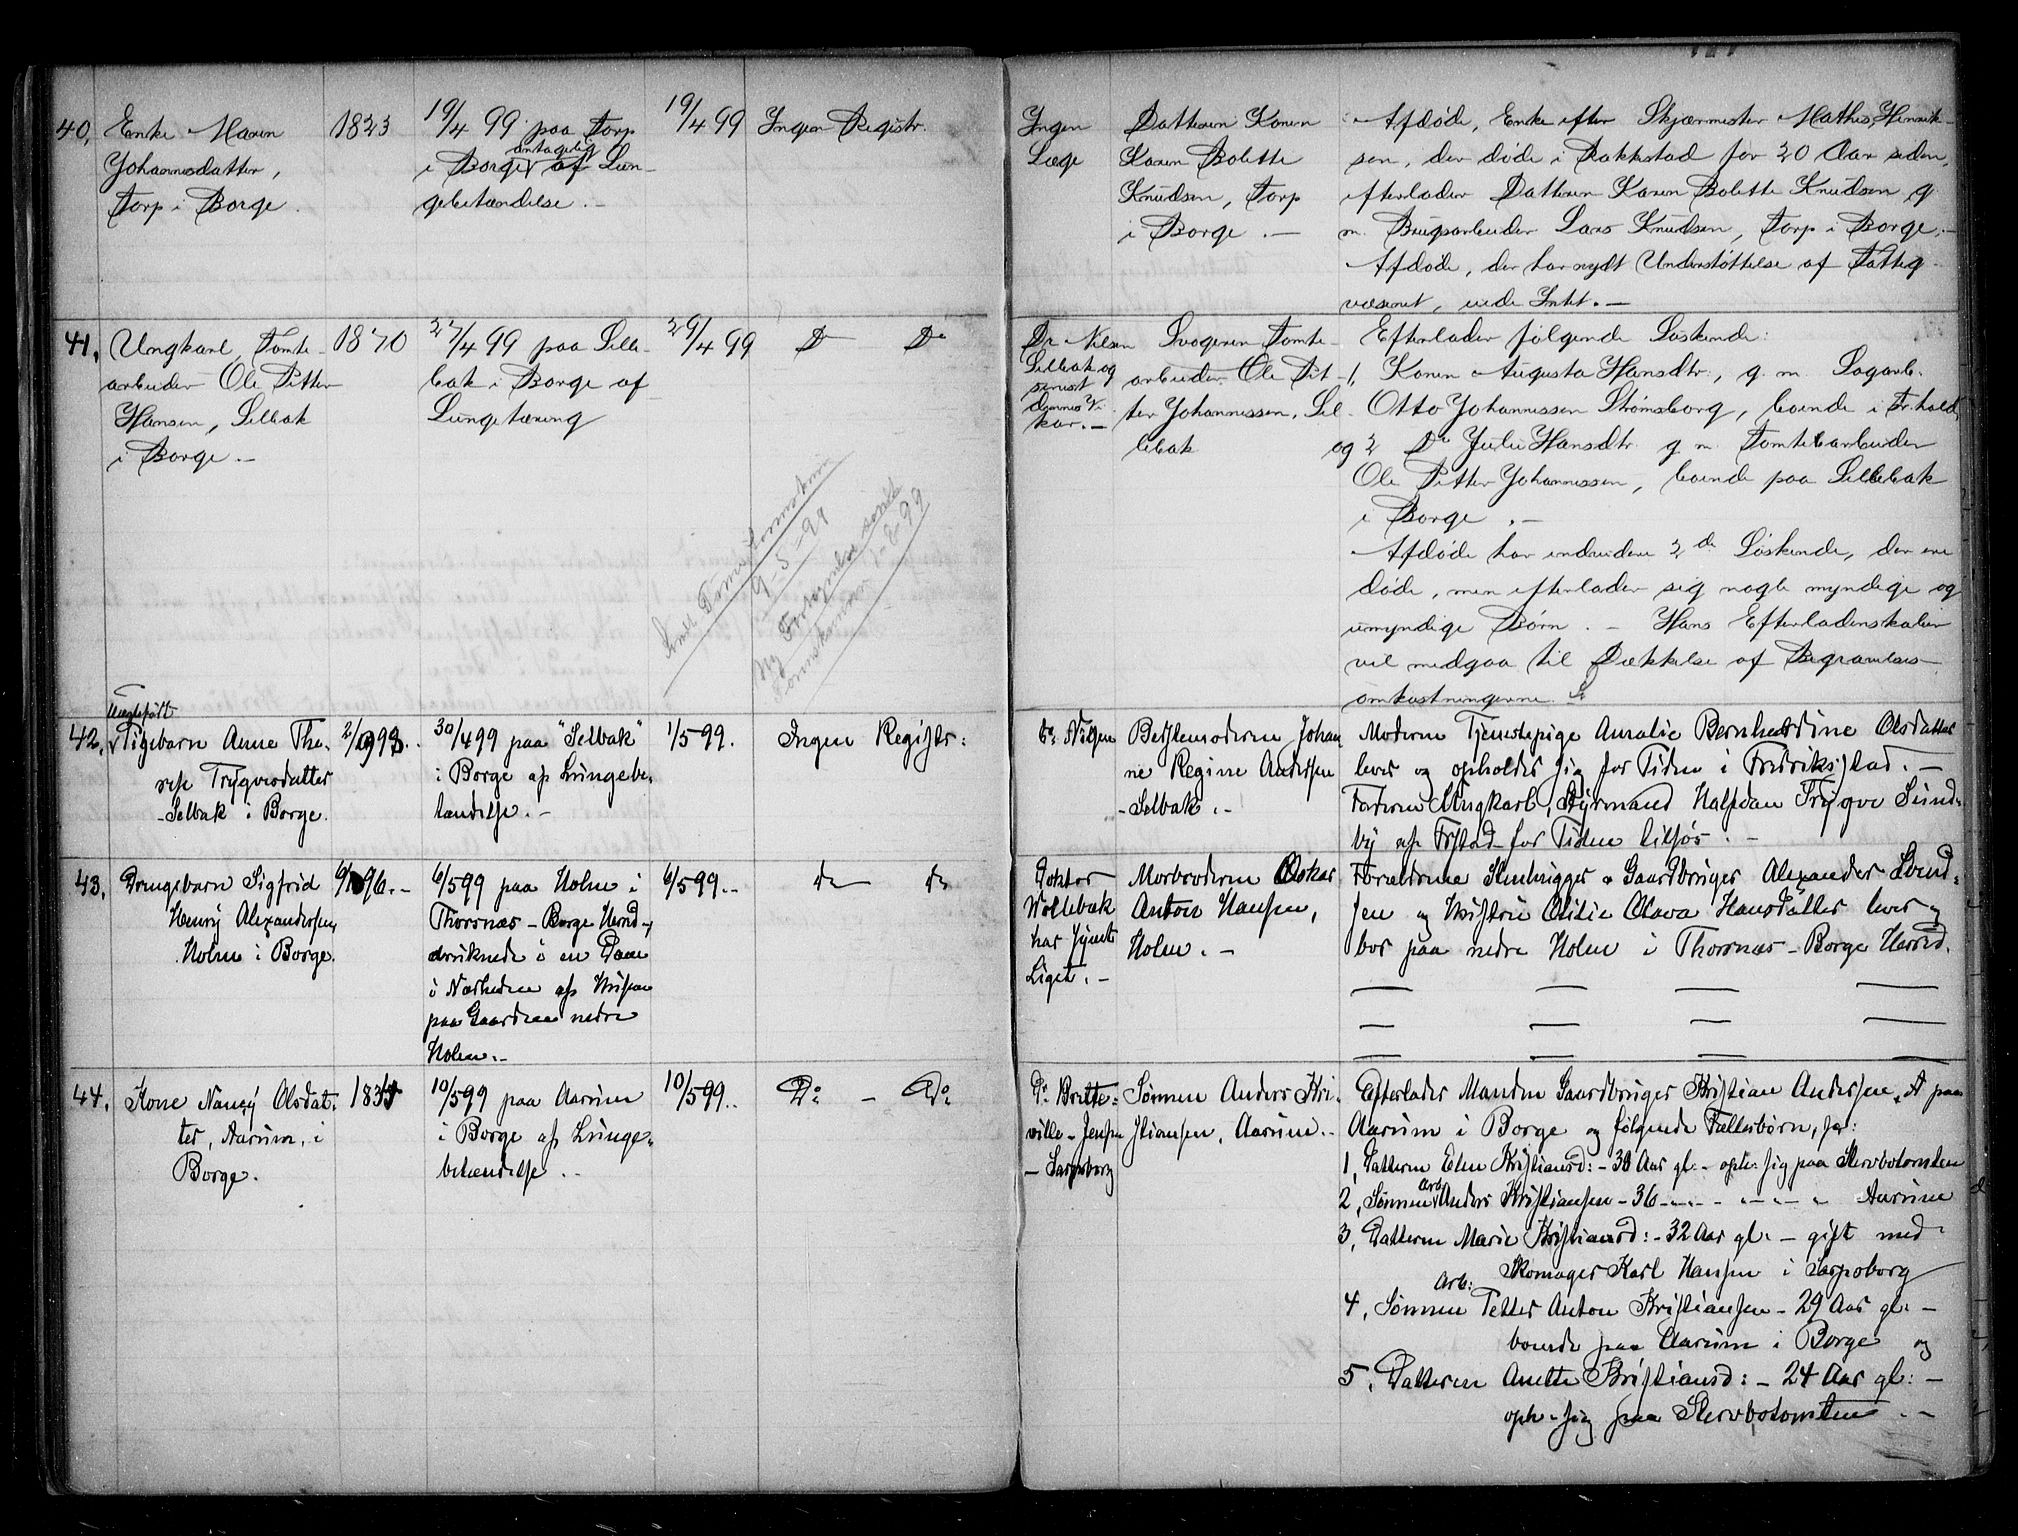 40, Enke Maren
Johannesdatter,
Torp i Borge.
1823
19/4 99 paa Torp
i Borge antagelig af Lun-
gebetændelse. -
19/4 99
Ingen Registr.
Ingen
Læge
Datteren Konen
Karen Bolette
Knudsen, Torp
i Borge. -
Afdøde, Enke efter Skjærmester Mathis Henrik-
sen, der døde i Rakkstad for 20 Aar siden,
efterlader Datteren Karen Bolette Knudsen g.
m. Brugsarbeider Lars Knudsen, Torp i Borge. -
Afdøde, der har nydt Understøttelse af Fattig-
væsenet, eiede Intet. -
41, Ungkarl, Tomte-
arbeider Ole Petter
Hansen, Sellbak
i Borge. -
1870
27/4 99 paa Selle-
bak i Borge af
Lungetæring
29/4 99
Do Do
Dr. Nilsen
Sellbak og
senest
dennes Vi-
kar. -
Svogeren Tomte-
arbeider Ole Pet-
ter Johannessen, Sel-
lebak
Efterlader følgende Søskende:
1, Konen Augusta Hansdtr., g. m. Sagarb.
Otto Johannessen Strømsborg, boende i Fr.hald,
og 2 Do Julie Hansdtr. g. m. Tomtearbeider
Ole Petter Johannessen, boende paa Sellebak
i Borge. -
Afdøde har endvidere 2de Søskende, der ere
døde, men efterlader sig nogle myndige og
umyndige Børn. - Hans Efterladenskaber
vil medgaa til Dækkelse af Begravelses-
omkostningerne.
19-5-99
Ny Fortegnelse sendt
42, Uægtefødt Pigebarn Anne The-
rese Trygvesdatter
- Selbak i Borge.
30/4 99 paa "Selbak"
i Borge af Lungebe-
tændelse. -
1/5 99.
Ingen Registr:
Dr. Nilsen
Bestemoderen Johan-
ne Regine Andersen
- Selbak. -
Moderen Tjenestepige Amalie Bernhardine Olsdatter
lever og opholder sig for Tiden i Fredrikstad. -
Faderen Ungkarl, Styrmand Halfdan Trygve Sund-
by af F.stad for Tiden tilsjøs. -
43, Drengebarn Sigfrid
Henry Alexandersen,
Holm i Borge.
6/5 99 paa Holm i
Thorsnæs - Borge Herred -
druknede i en Dam
i Nærheden af Husene
paa Gaarden nedre
Holm. -
6/5 99. -
Do Do
Doktor
Wollebæk
har synet
Liget. -
Morbroderen Oskar
Anton Hansen,
Holm. -
Forældrene Stenhugger & Gaardbruger Alexander Svend-
sen og Hustru Otilie Olava Hansdatter lever og
bor paa nedre Holm i Thorsnæs - Borge Herred.
44. Kone Nancy Olsdat-
ter, Aarum, i
Borge.
10/5 99 paa Aarum
i Borge af Lunge-
betændelse. -
10/5 99..
Do - Do
Dr. Brette-
ville-Jensen
- Sarpsborg
Sønnen Anders Kri-
stiansen, Aarum. -
Efterlader Manden Gaardbruger Kristian Andersen, paa
Aarum i Borge og følgende Fællesbørn, ser:
1, Datteren Elen Kristiansd: - 38 Aar gl. - oph. sig paa Stervbotomten
2, Sønnen Arb. Anders Kristiansen - 36 - " - " - " Aarum
3, Datteren Marie Kristiansd: - 32 Aar gl. - gift med
Skomager Karl Hansen i Sarpsborg
4, Sønnen Arb: Petter Anton Kristiansen - 29 Aar gl. -
boende paa Aarum i Borge og
5, Datteren Anette Kristiansd: - 24 Aar gl: -
oph. sig paa Stervbotomten. -